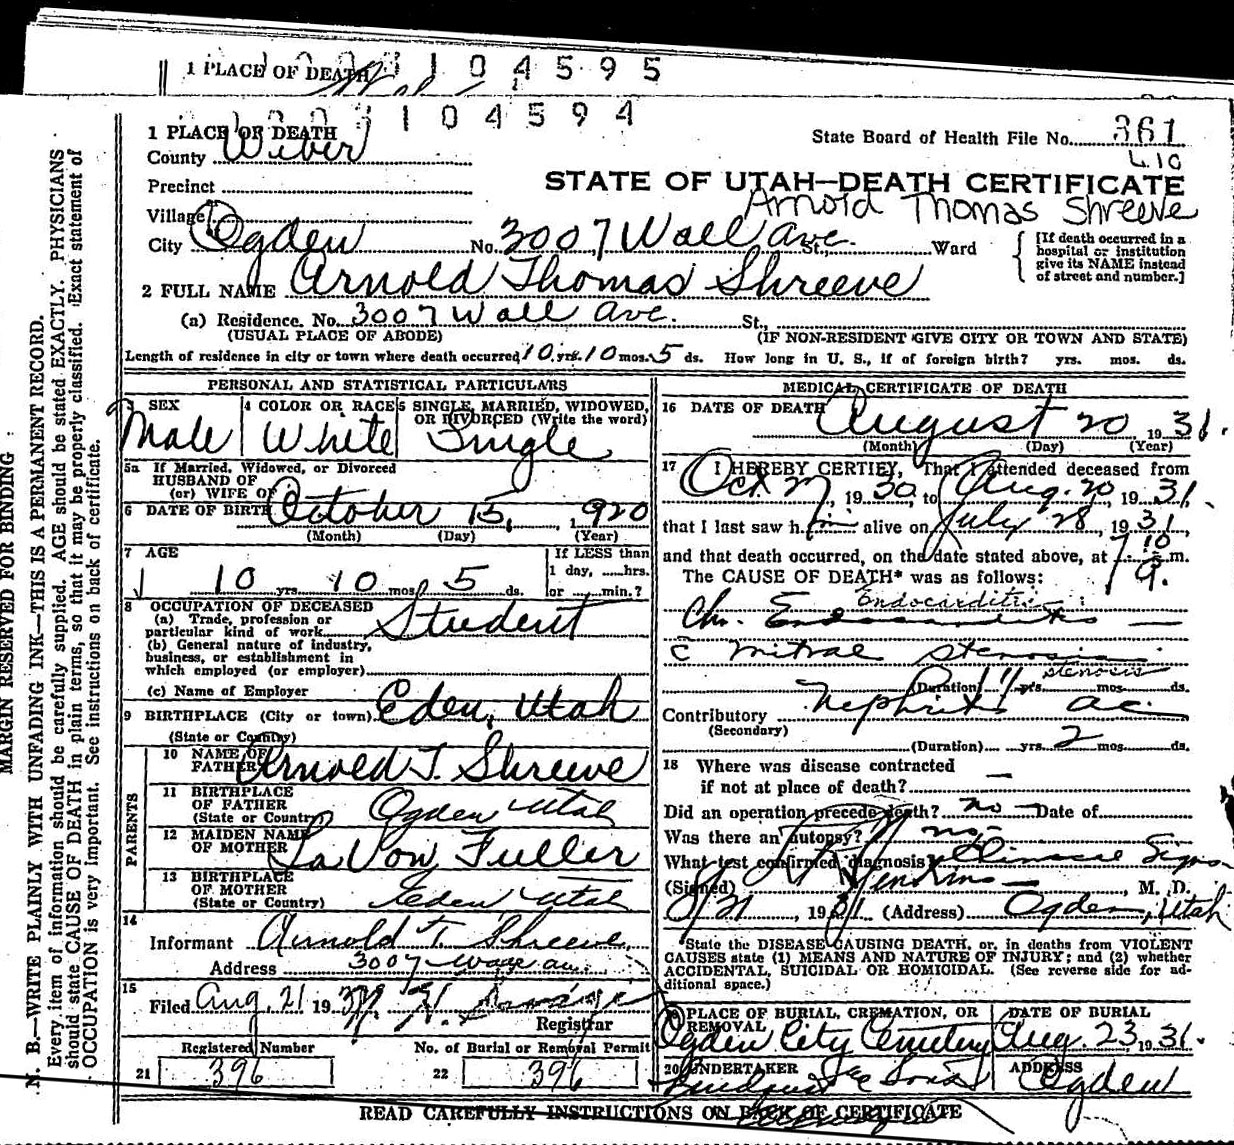 1 PLACE OF DEATH 1 0 4 5 9 5
1 0 4 5 9 4
1 PLACE OF DEATH
State Board of Health File No. 361
County Weber
L.10
Precinct
STATE OF UTAH—DEATH CERTIFICATE
Arnold Thomas Shreeve
Village
City Ogden No. 3007 Wall Ave. St., Ward
[If death occurred in a
hospital or institution
give its NAME instead
of street and number.]
2 FULL NAME Arnold Thomas Shreeve
(a) Residence. No. 3007 Wall Ave. St.,
(USUAL PLACE OF ABODE) (IF NON-RESIDENT GIVE CITY OR TOWN AND STATE)
Length of residence in city or town where death occurred 10 yrs. 10 mos. 5 ds. How long in U. S., if of foreign birth? yrs. mos. ds.
PERSONAL AND STATISTICAL PARTICULARS
3 SEX 4 COLOR OR RACE 5 SINGLE, MARRIED, WIDOWED,
OR DIVORCED (Write the word)
Male White Single
5a If Married, Widowed, or Divorced
HUSBAND OF
(or) WIFE OF
6 DATE OF BIRTH October 15, 1920
(Month) (Day) (Year)
7 AGE If LESS than
1 day, ......hrs.
10 yrs. 10 mos. 5 ds. or ...... min.?
8 OCCUPATION OF DECEASED
(a) Trade, profession or
particular kind of work Student
(b) General nature of industry,
business, or establishment in
which employed (or employer)
(c) Name of Employer
9 BIRTHPLACE (City or town) Eden, Utah
(State or Country)
PARENTS
10 NAME OF
FATHER Arnold T. Shreeve
11 BIRTHPLACE
OF FATHER
(State or Country) Ogden Utah
12 MAIDEN NAME
OF MOTHER La Von Fuller
13 BIRTHPLACE
OF MOTHER
(State or Country) Eden Utah
14
Informant Arnold T. Shreeve
Address 3007
15
Filed Aug. 21 19 31
Registrar
Registered Number No. of Burial or Removal Permit
21 396 22 396
MEDICAL CERTIFICATE OF DEATH
16 DATE OF DEATH August 20 19 31.
(Month) (Day) (Year)
17 I HEREBY CERTIFY, That I attended deceased from
Oct 27, 19 30, to Aug. 20, 19 31,
that I last saw h im alive on July 28, 19 31,
and that death occurred, on the date stated above, at m.
The CAUSE OF DEATH* was as follows:
Endocarditis
Chr. Endocarditis
c mitral stenosis
stenosis
(Duration) yrs. mos. ds.
Contributory Nephritis ac.
(Secondary)
(Duration) yrs. 2 mos. ds.
18 Where was disease contracted
if not at place of death? —
Did an operation precede death? no Date of
Was there an autopsy? no
What test confirmed diagnosis? Signs
(Signed) Jenkins, M. D.
8/21, 19 31 (Address) Ogden, Utah
*State the DISEASE CAUSING DEATH, or, in deaths from VIOLENT
CAUSES state (1) MEANS AND NATURE OF INJURY; and (2) whether
ACCIDENTAL, SUICIDAL OR HOMICIDAL. (See reverse side for ad-
ditional space.)
PLACE OF BURIAL, CREMATION, OR
REMOVAL
DATE OF BURIAL
Ogden City Cemetery Aug. 23, 19 31.
20 UNDERTAKER ADDRESS
Sons Ogden
READ CAREFULLY INSTRUCTIONS ON BACK OF CERTIFICATE
MARGIN RESERVED FOR BINDING
N. B.—WRITE PLAINLY WITH UNFADING INK—THIS IS A PERMANENT RECORD.
Every item of information should be carefully supplied. AGE should be stated EXACTLY. PHYSICIANS
should state CAUSE OF DEATH in plain terms, so that it may be properly classified. Exact statement of
OCCUPATION is very important. See instructions on back of certificate.